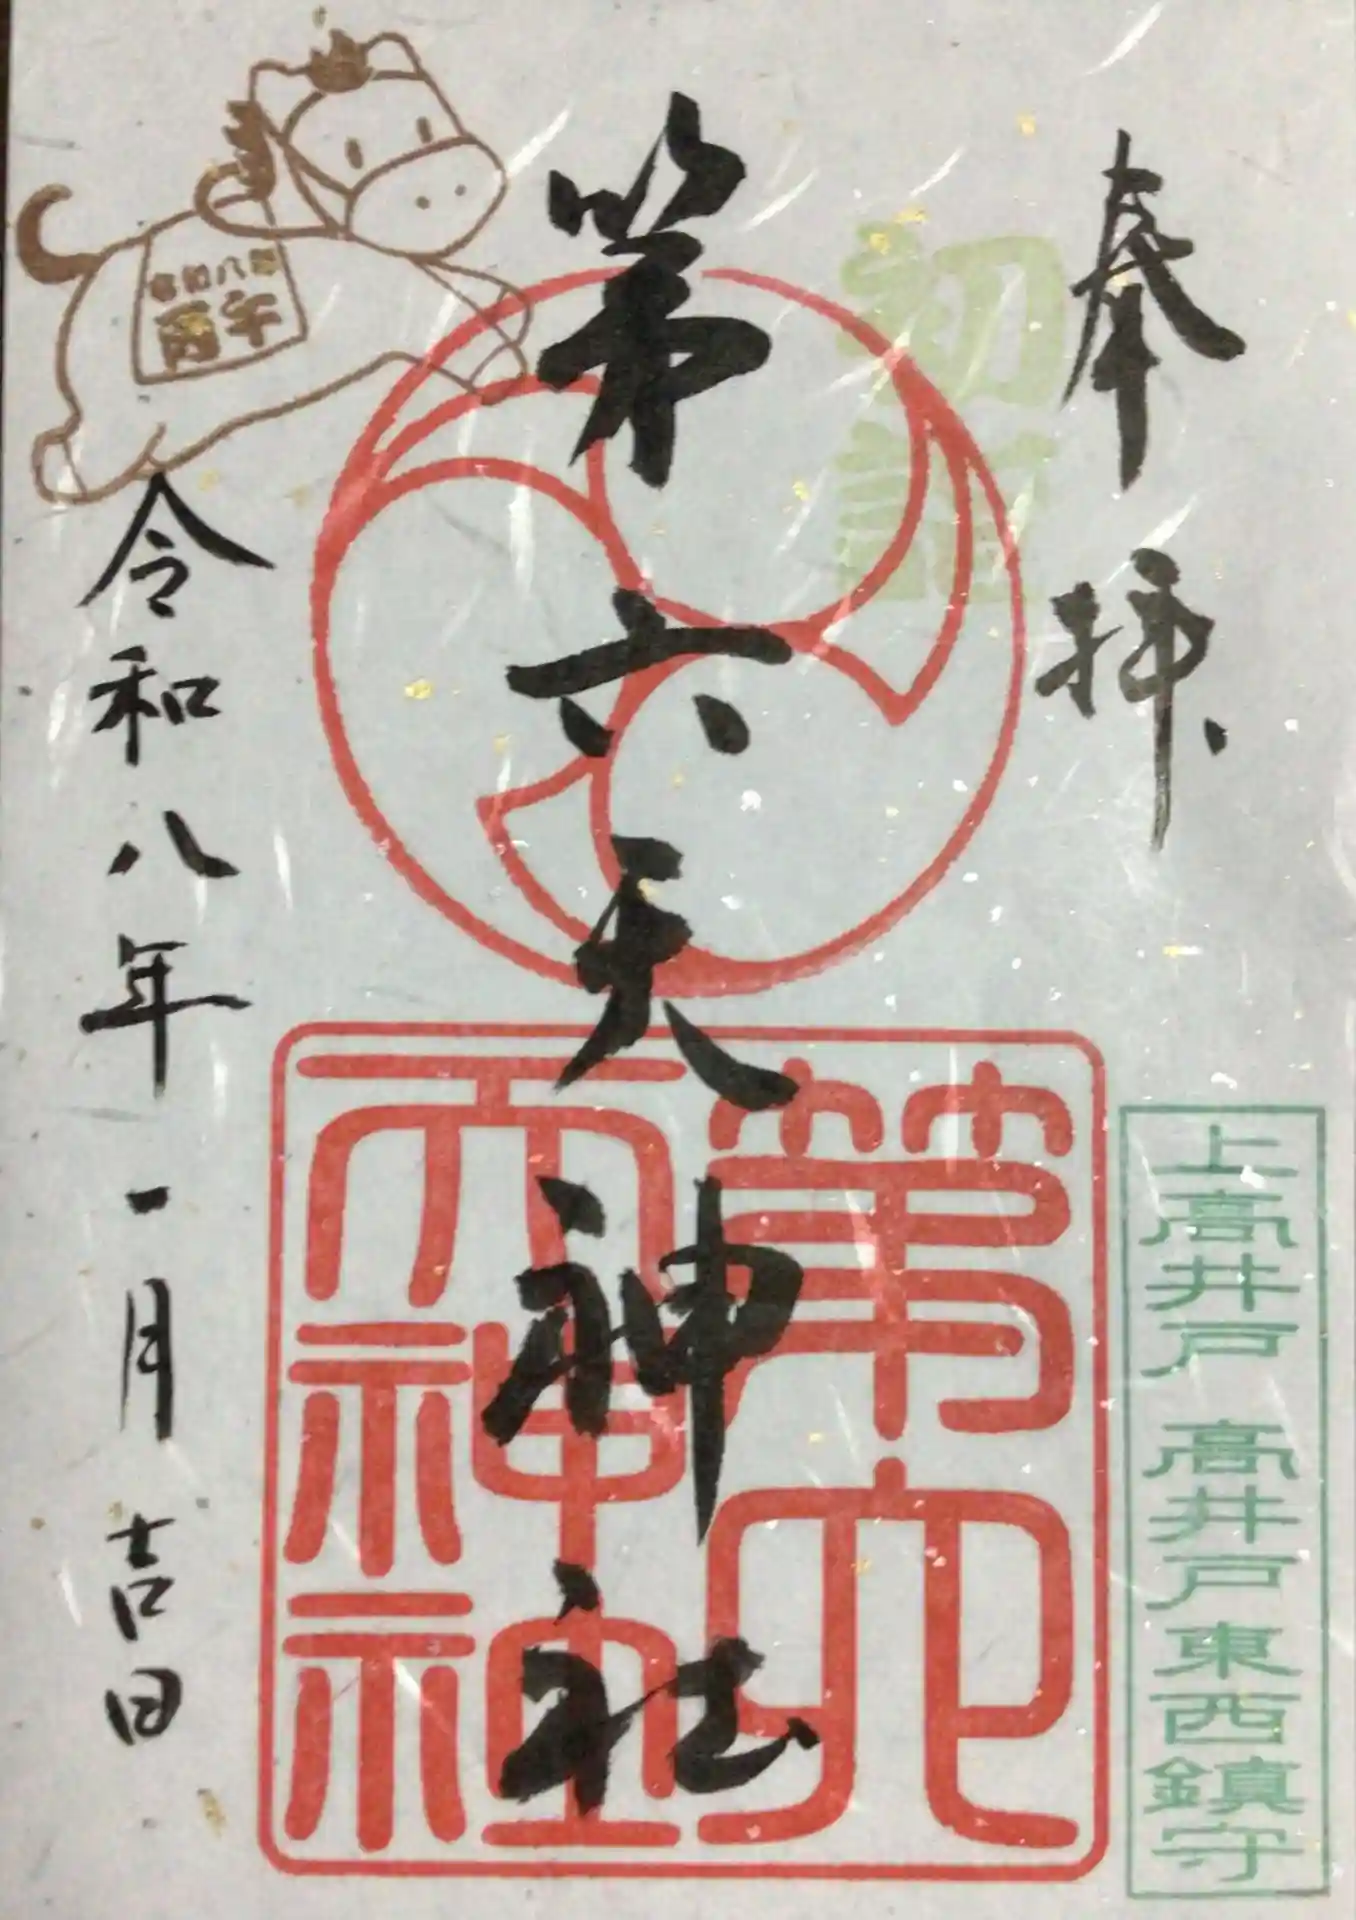 奉拝
初詣
上高井戸 高井戸東西鎮守
第六天神社
第六
天神社
令和八年
丙午
令和八年一月吉日